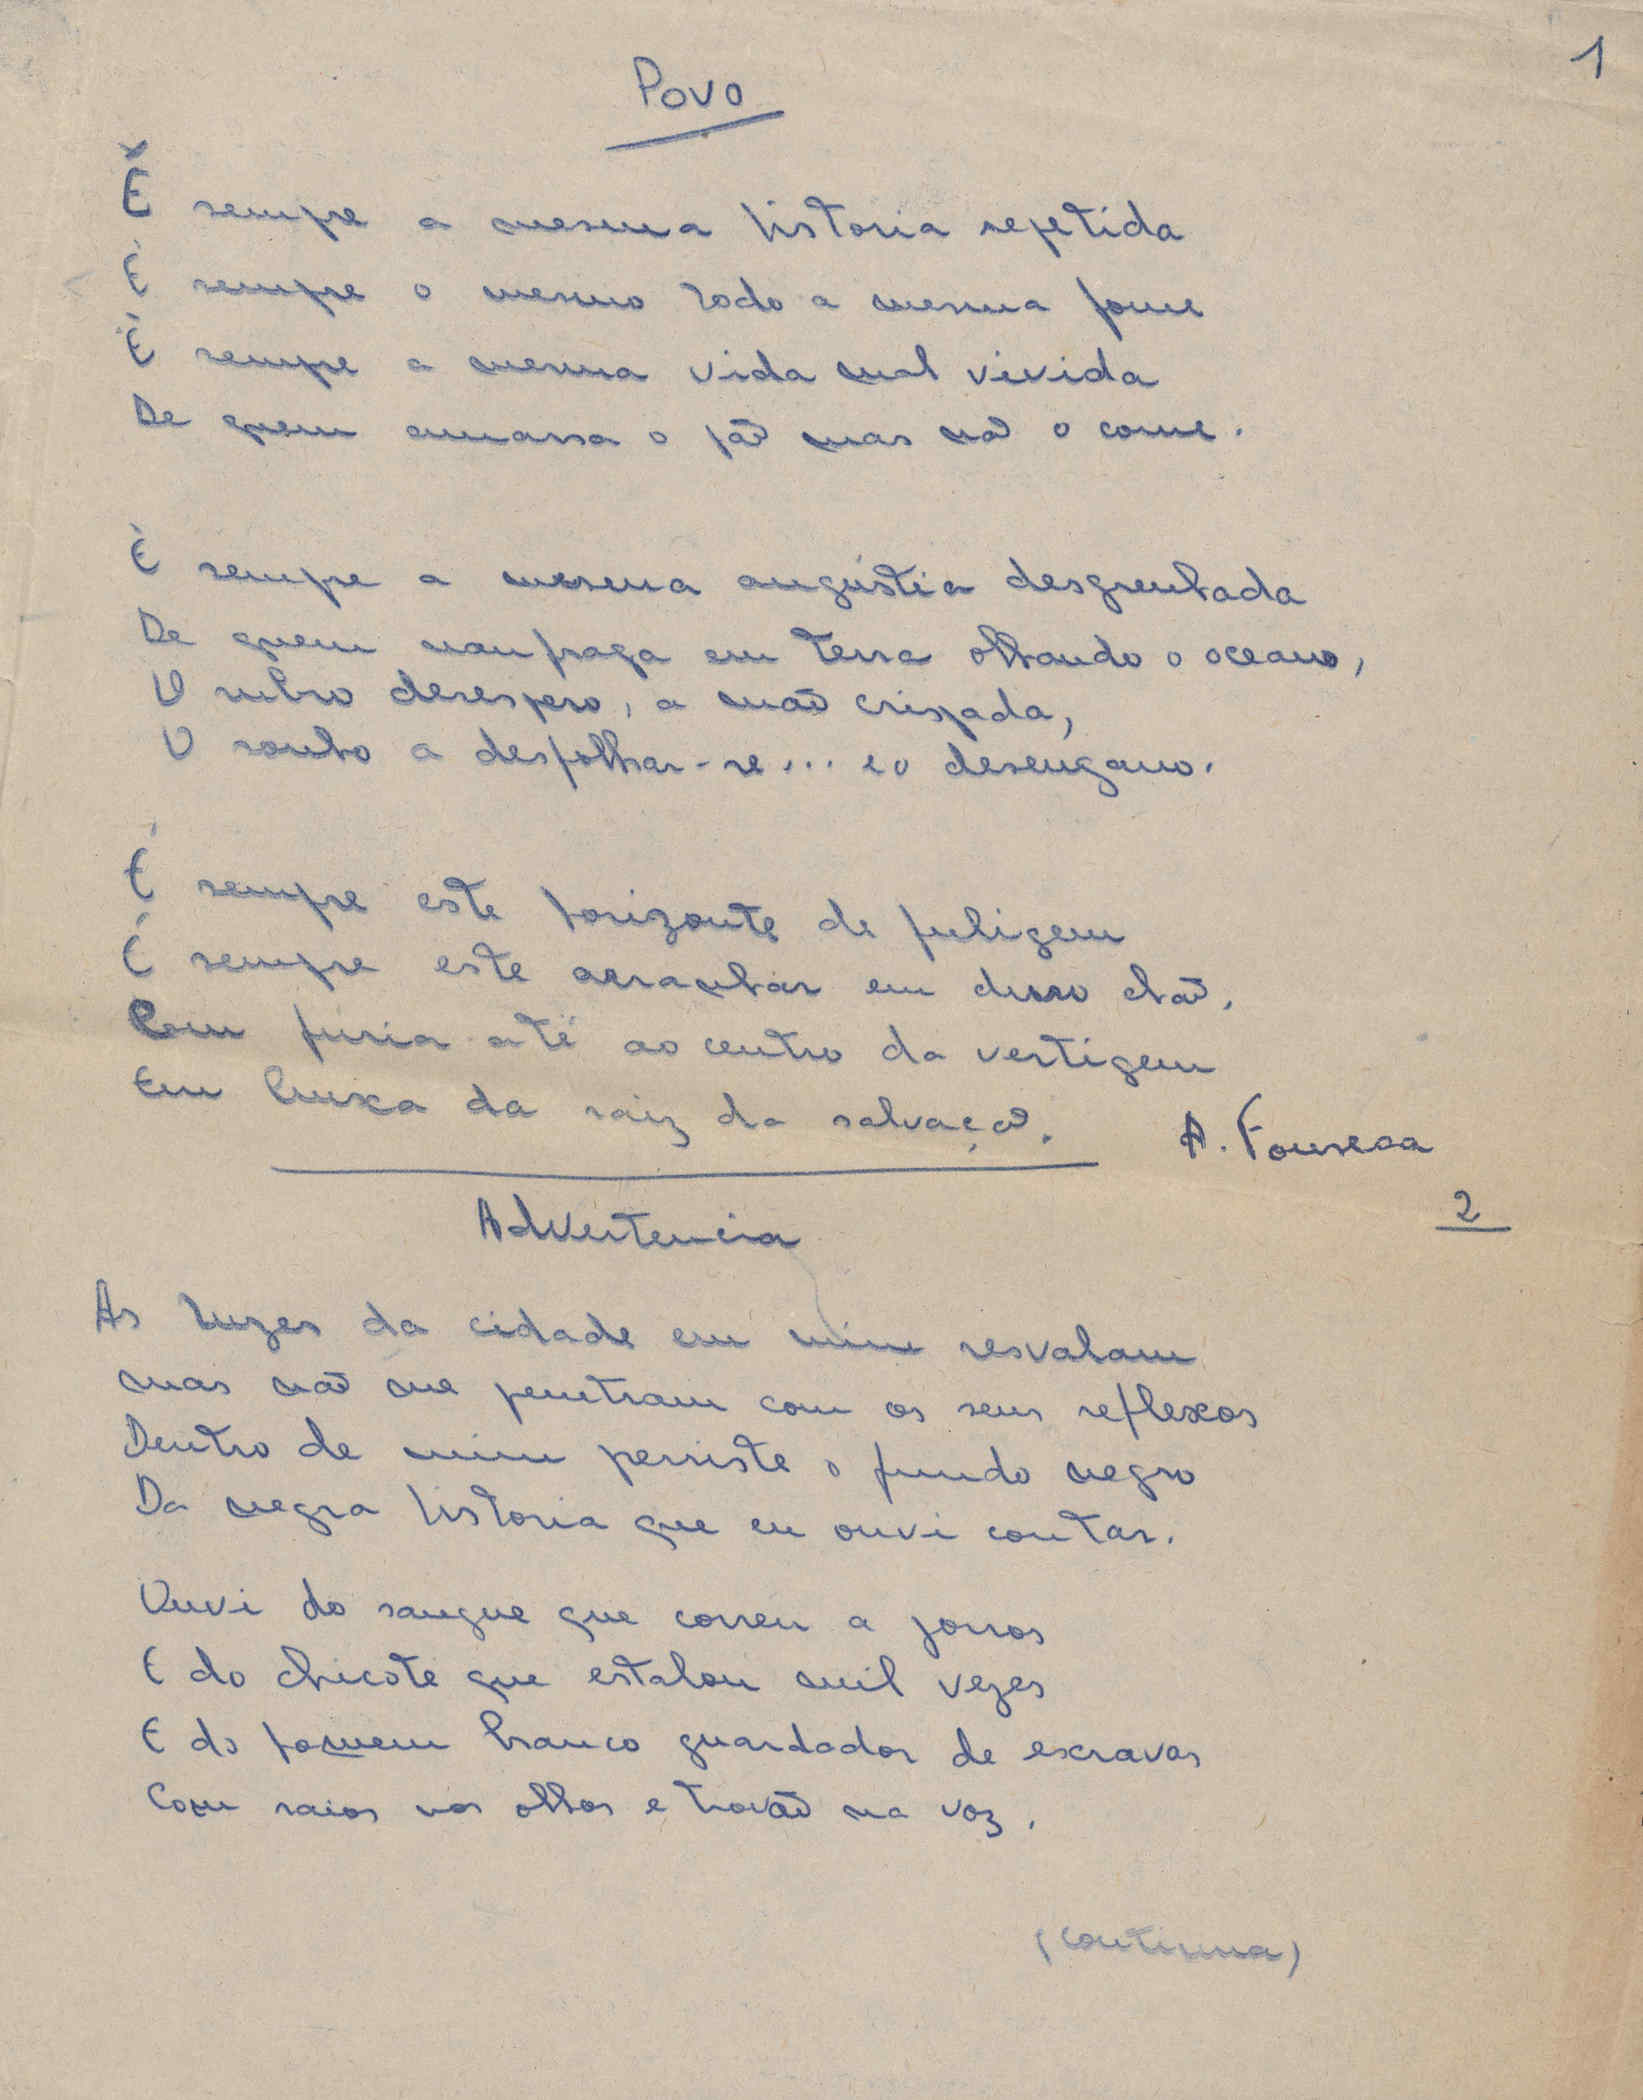 1
Povo
É sempre a mesma historia repetida
É sempre o mesmo lodo a mesma fome
É sempre a mesma vida mal vivida
De quem amassa o pão mas não o come.
É sempre a mesma angústia desgrenhada
De quem naufraga em terra olhando o oceano,
O rubro desespero, a mão crispada,
O sonho a desfolhar-se... e o desengano.
É sempre este horizonte de fuligem
É sempre este arranhar em duro chão,
Com fúria até ao centro da vertigem
Em busca da raiz da salvação.
A. Fonseca
2
Advertencia
As luzes da cidade em mim resvalam
mas não me penetram com os seus reflexos
Dentro de mim persiste o fundo negro
Da negra historia que eu ouvi contar.
Ouvi do sangue que correu a jorros
E do chicote que estalou mil vezes
E do homem branco guardador de escravos
Com raios nos olhos e trovão na voz.
(continua)